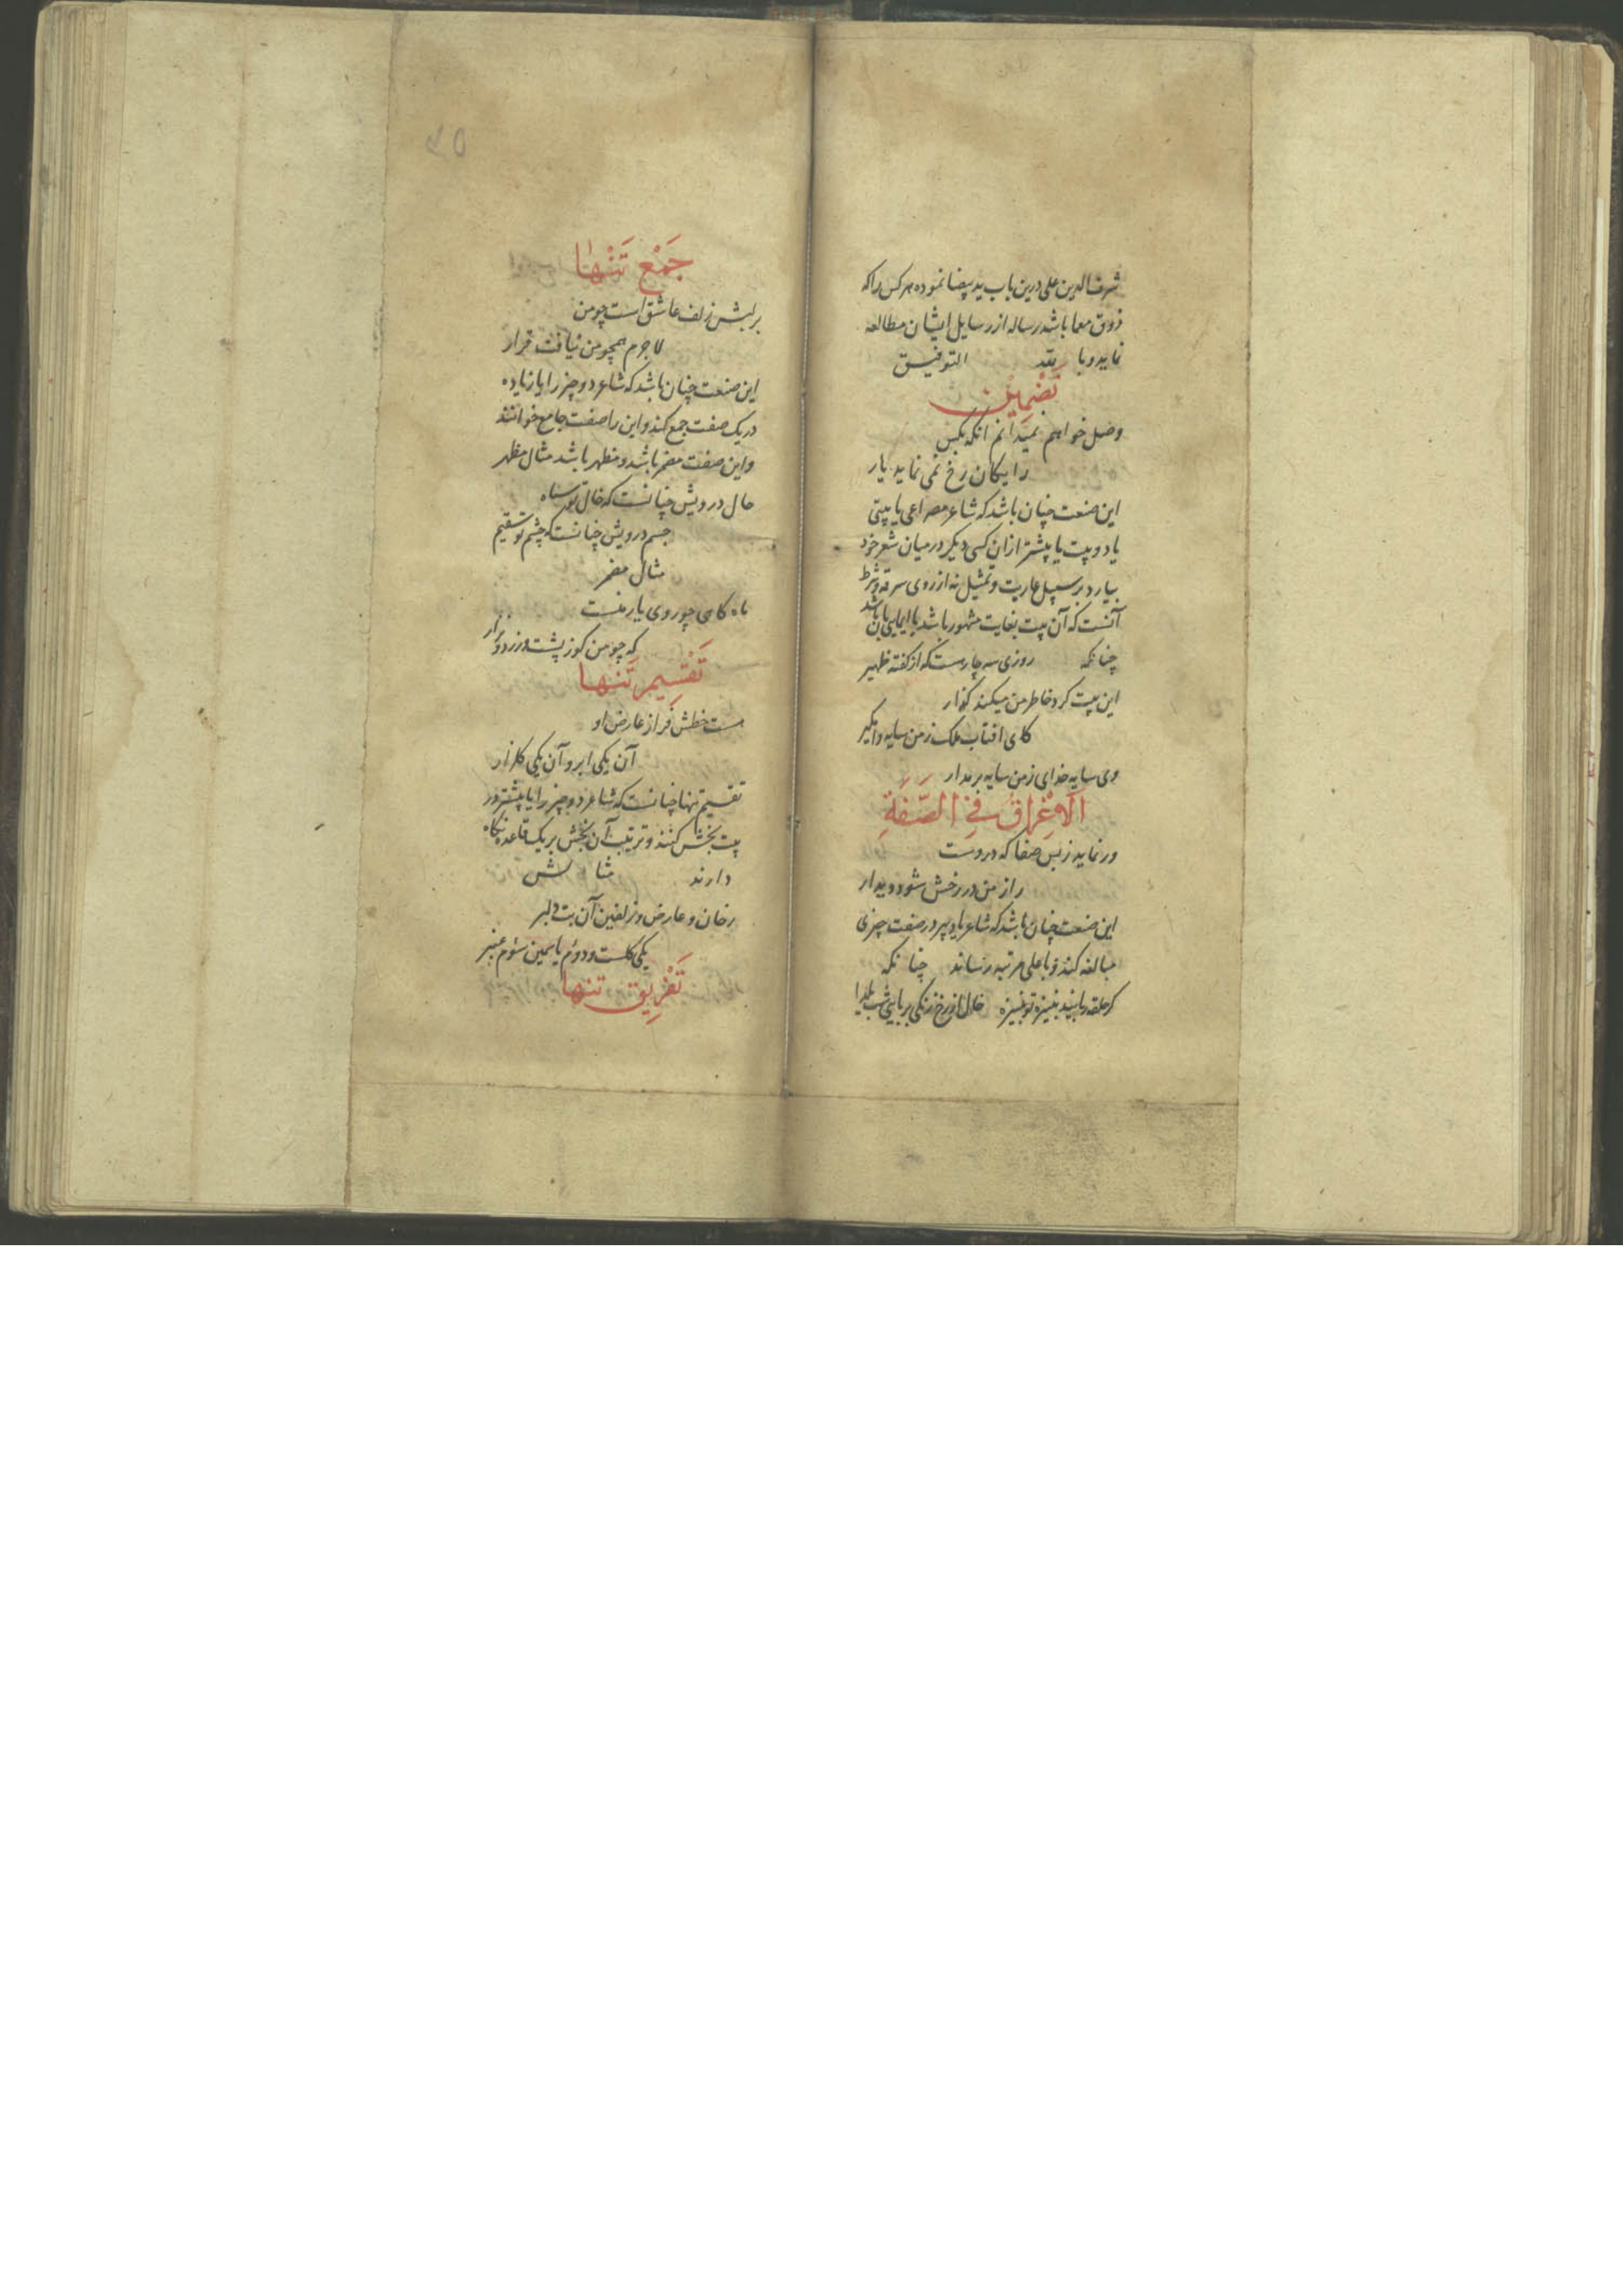 شرف الدین علی درین باب ید بیضا نموده هر کس را که
ذوق معما باشد رساله از رسایل ایشان مطالعه
نماید و با لله التوفیق
تضمین
وصل خواهم نمیدانم آنکه بکس
رایکان رخ نمی نماید یار
این صنعت چنان باشد که شاعر مصراعی یا بیتی
یا دو بیت یا بیشتر از ان کسی دیکر در میان شعر خود
بیارد بر سبیل عاریت و تمثیل نه از روی سرقه و شرط
آنست که آن بیت بغایت مشهور باشد یا ایمایی بآن باشد
چنانکه روزی سه چارست که از کفته ظهیر
این بیت کرد خاطر من میکند کذار
کای افتاب ملک ز من سایه وامکیر
وی سایه خدای ز من سایه بر مدار
الاغراق في الصفة
ور نماید ز بس صفا که دروست
راز من در رخش شود دیدار
این صنعت چنان باشد که شاعر یا دبیر در صفت چیزی
مبالغه کند و با علی مرتبه رساند چنانکه
کر حلقه ربایند بنیزه تو بنیزه خال از رخ زنکی بربایی شب یلدا
۴۵
جمع تنها
بر لبش زلف عاشق است چو من
لاجرم همچو من نیافت قرار
این صنعت چنان باشد که شاعر دو چیز را یا زیاده
در یک صفت جمع کند و این را صفت جامع خوانند
و این صفت مضمر باشد و مظهر باشد مثال مظهر
حال درویش چنانست که خال تو سیاه
جسم درویش چنانست که چشم تو سقیم
مثال مضمر
ماه کاهی چو روی یار منست
که چو من کوز پشت و زرد و نزار
تقسیم تنها
هست خطش فراز عارض او
آن یکی ابر و آن یکی کلزار
تقسیم تنها چنانست که شاعر دو چیز را یا بیشتر در
بیت بخش کنند و ترتیب آن بخش بر یک قاعده نکاه
دارند مثالش
رخان و عارض و زلفین آن بت دلبر
یکی کلست و دوم یاسمین سوم عنبر
تفریق تنها